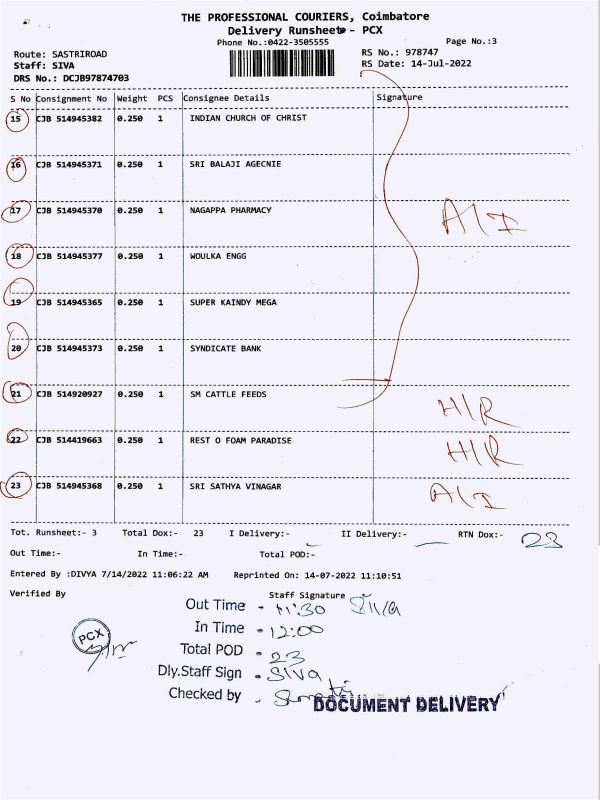 THE PROFESSIONAL COURIERS, Coimbatore
Delivery Runsheet - PCX
Phone No.:0422-3505555
Page No.:3
Route: SASTRIROAD
RS No.: 978747
Staff: SIVA
RS Date: 14-Jul-2022
DRS No.: DCJB97874703
S No Consignment No Weight PCS Consignee Details Signature
15 CJB 514945382 0.250 1 INDIAN CHURCH OF CHRIST
16 CJB 514945371 0.250 1 SRI BALAJI AGECNIE
17 CJB 514945370 0.250 1 NAGAPPA PHARMACY A/I
18 CJB 514945377 0.250 1 WOULKA ENGG
19 CJB 514945365 0.250 1 SUPER KAINDY MEGA
20 CJB 514945373 0.250 1 SYNDICATE BANK
21 CJB 514920927 0.250 1 SM CATTLE FEEDS H/R
22 CJB 514419663 0.250 1 REST O FOAM PARADISE H/R
23 CJB 514945368 0.250 1 SRI SATHYA VINAGAR A/I
Tot. Runsheet:- 3 Total Dox:- 23 I Delivery:- II Delivery:- RTN Dox:- 23
Out Time:- In Time:- Total POD:-
Entered By :DIVYA 7/14/2022 11:06:22 AM Reprinted On: 14-07-2022 11:10:51
Verified By Staff Signature
Out Time - 11:30 Siva
In Time - 12:00
PCX
Total POD - 23
Dly.Staff Sign - SIVA
Checked by -
DOCUMENT DELIVERY